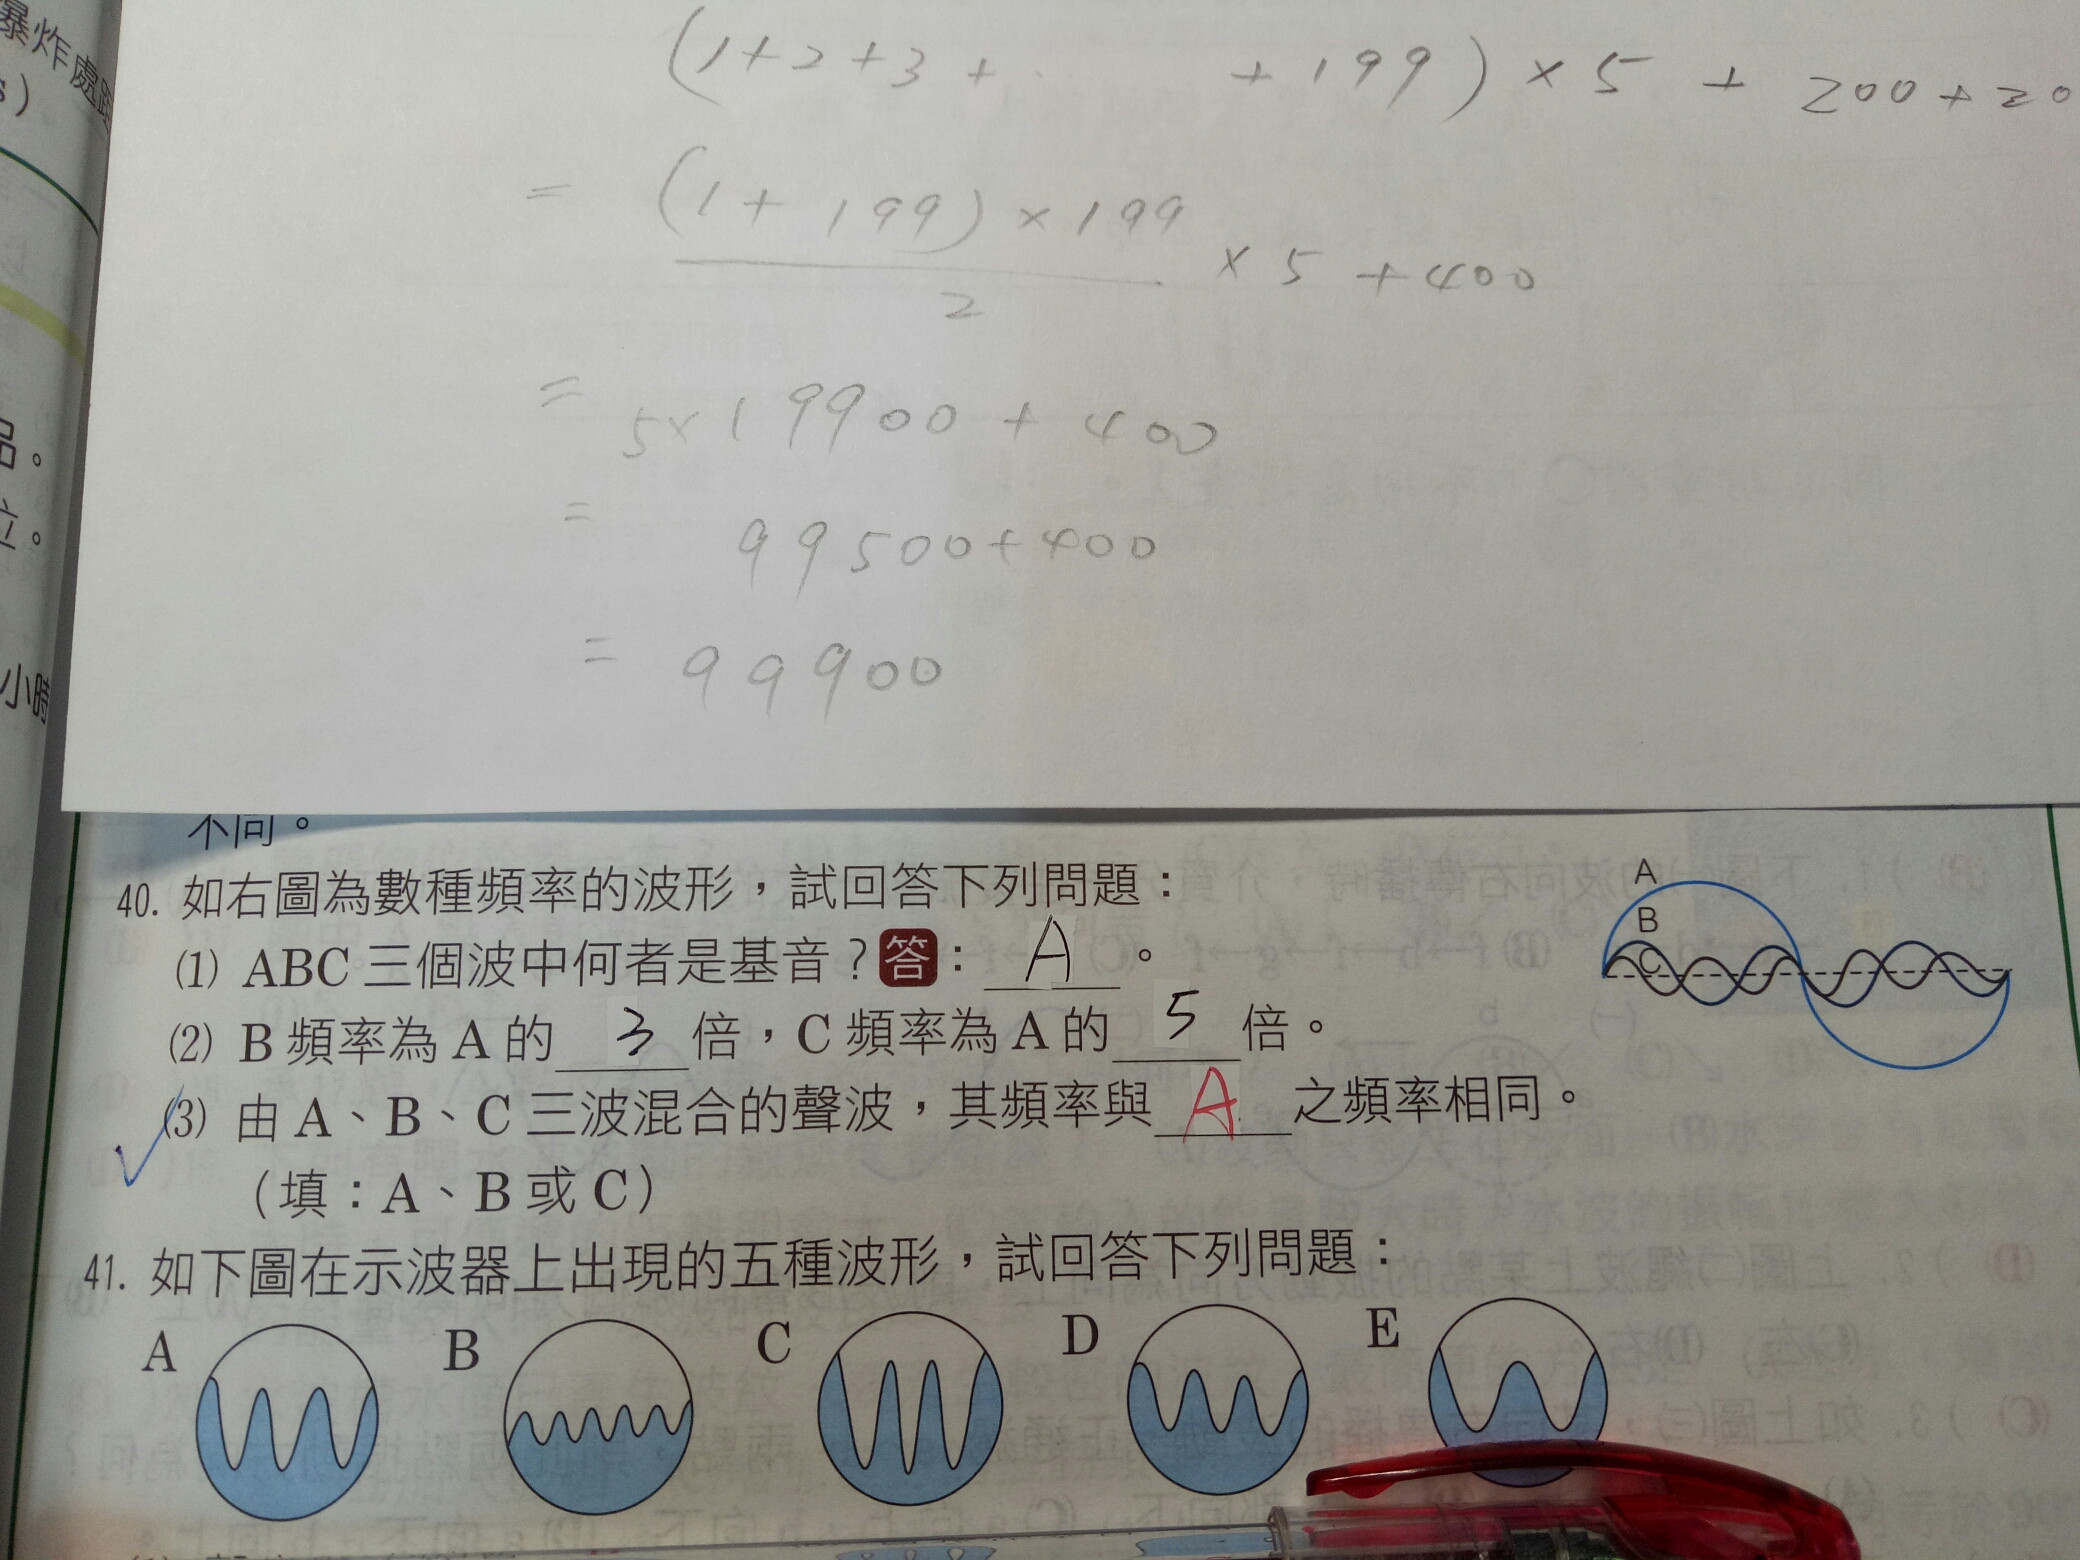 爆炸處距
s)
品。
位。
小時
(1+2+3+· +199)×5+200+20
= (1+199)×199
2
×5+400
= 5×19900+400
= 99500+400
= 99900
不同。
40. 如右圖為數種頻率的波形，試回答下列問題：
(1) ABC 三個波中何者是基音？答：A。
(2) B 頻率為 A 的 3 倍，C 頻率為 A 的 5 倍。
(3) 由 A、B、C 三波混合的聲波，其頻率與 A 之頻率相同。
(填：A、B 或 C)
A
B
C
41. 如下圖在示波器上出現的五種波形，試回答下列問題：
A B C D E